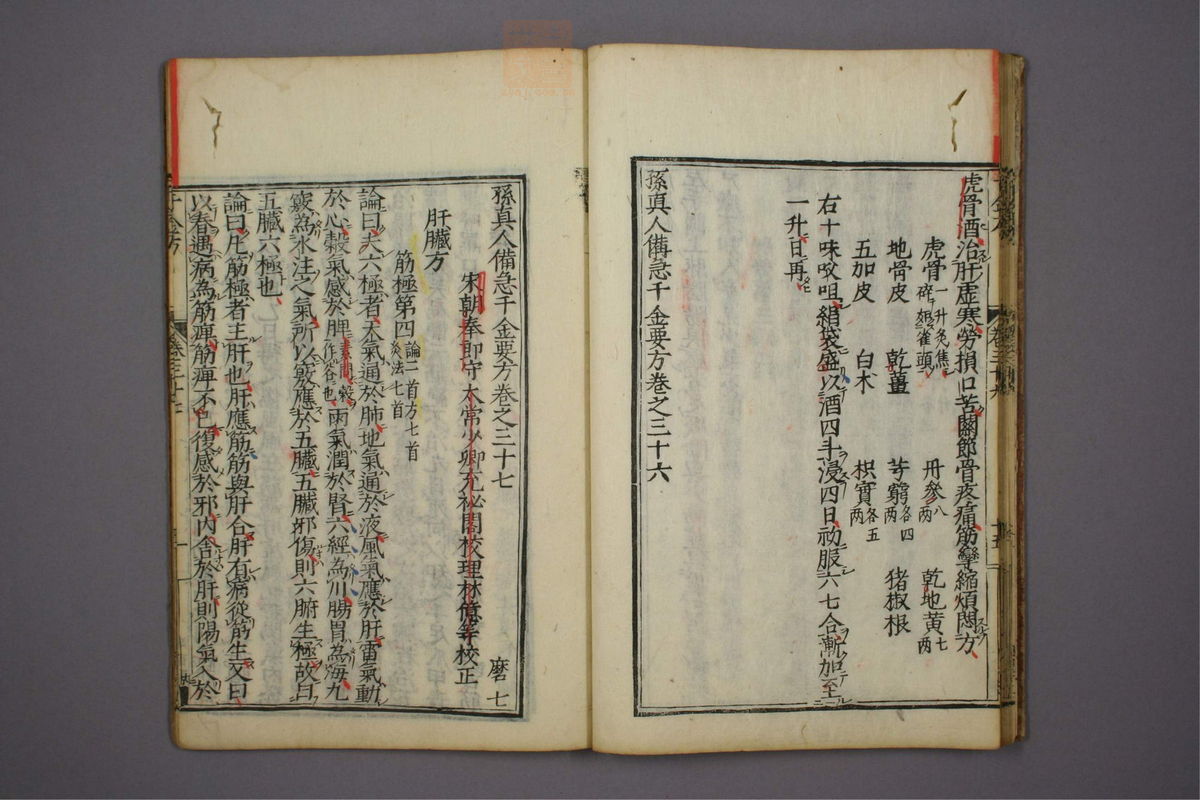 虎骨酒治肝虚寒勞損口苦關節骨疼痛筋攣縮煩悶方
虎骨一升炙焦碎如雀頭 丹參八兩 乾地黃七兩
地骨皮 乾薑 芎藭各四兩 猪椒根
五加皮 白朮 枳實各五兩
右十味㕮咀絹袋盛以酒四斗浸四日初服六七合漸加至
一升日再
孫真人備急千金要方卷之三十六
孫真人備急千金要方卷之三十七 磨七
宋朝奉郎守太常少卿充祕閣校理林億等校正
肝臟方
筋極第四論二首方七首灸法七首
論曰夫六極者天氣通於肺地氣通於液風氣應於肝雷氣動
於心穀氣感於脾素問穀作谷也雨氣潤於腎六經為川腸胃為海九
竅為水注之氣所以竅應於五臟五臟邪傷則六腑生極故曰
五臟六極也
論曰凡筋極者主肝也肝應筋筋與肝合肝有病從筋生又曰
以春遇病為筋痺筋痺不已復感於邪內舍於肝則陽氣入於